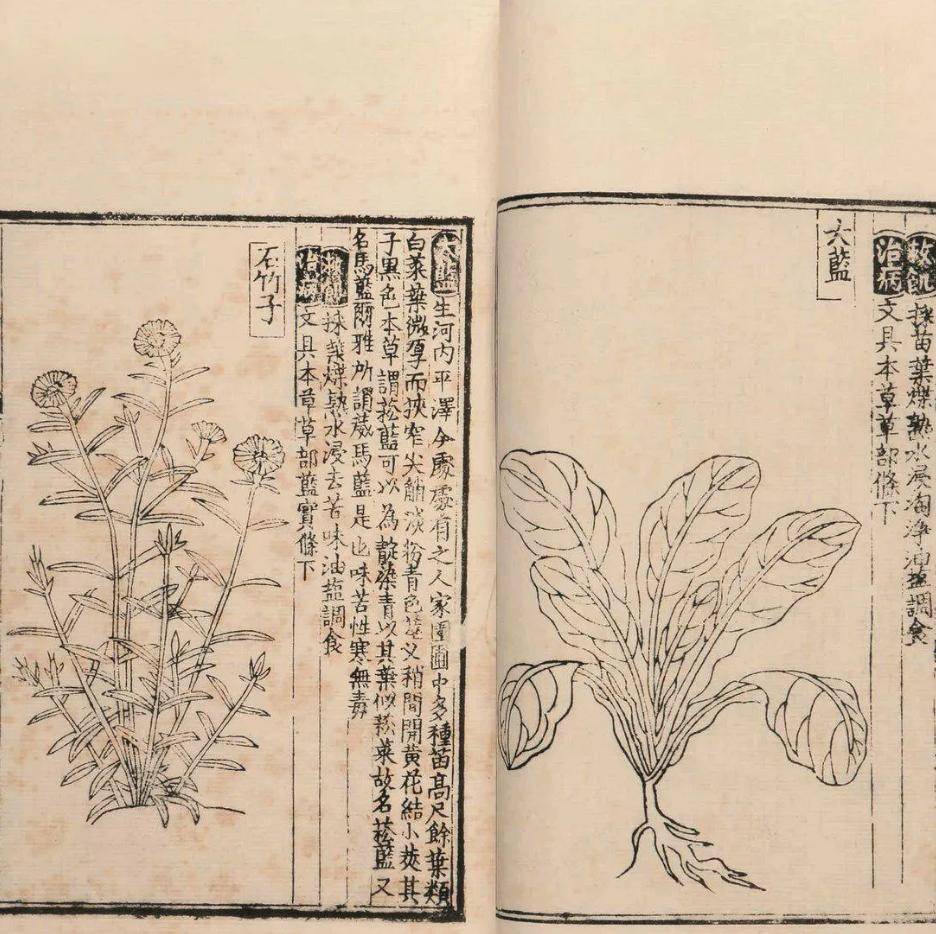 救飢採苗葉煠熟水浸淘淨油盐調食
治病文具本草草部條下
大藍
大藍生河内平澤今處處有之人家園圃中多種苗高尺餘葉類
白菜葉微厚而狹窄尖䚡淡粉青色莖叉稍間開黃花結小莢其
子黑色本草謂菘藍可以為靛染青以其葉似菘菜故名菘藍又
名馬藍爾雅所謂葴馬藍是也味苦性寒無毒
救飢採葉煠熟水浸去苦味油盐調食
治病文具本草草部藍實條下
石竹子